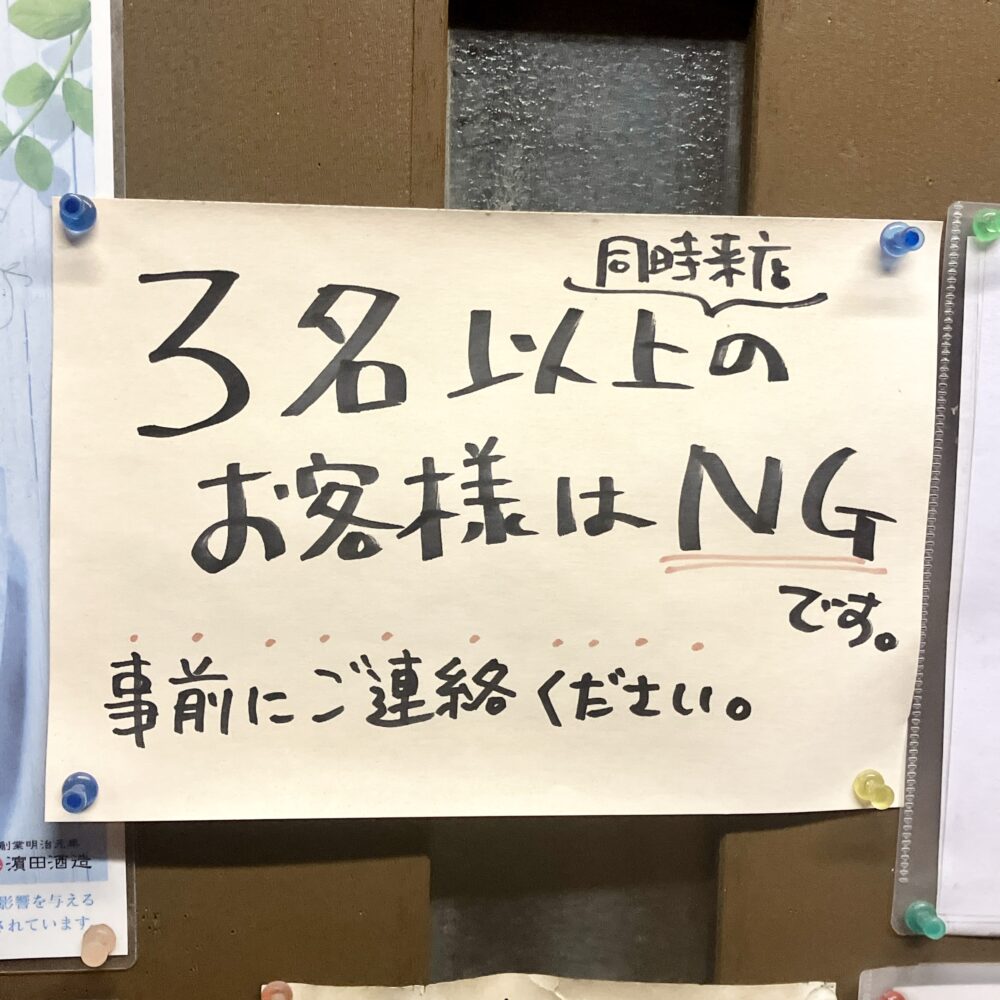 同時来店
3名以上の
お客様はNG
です。
事前にご連絡ください。
創業明治元年
濵田酒造
影響を与える
されています